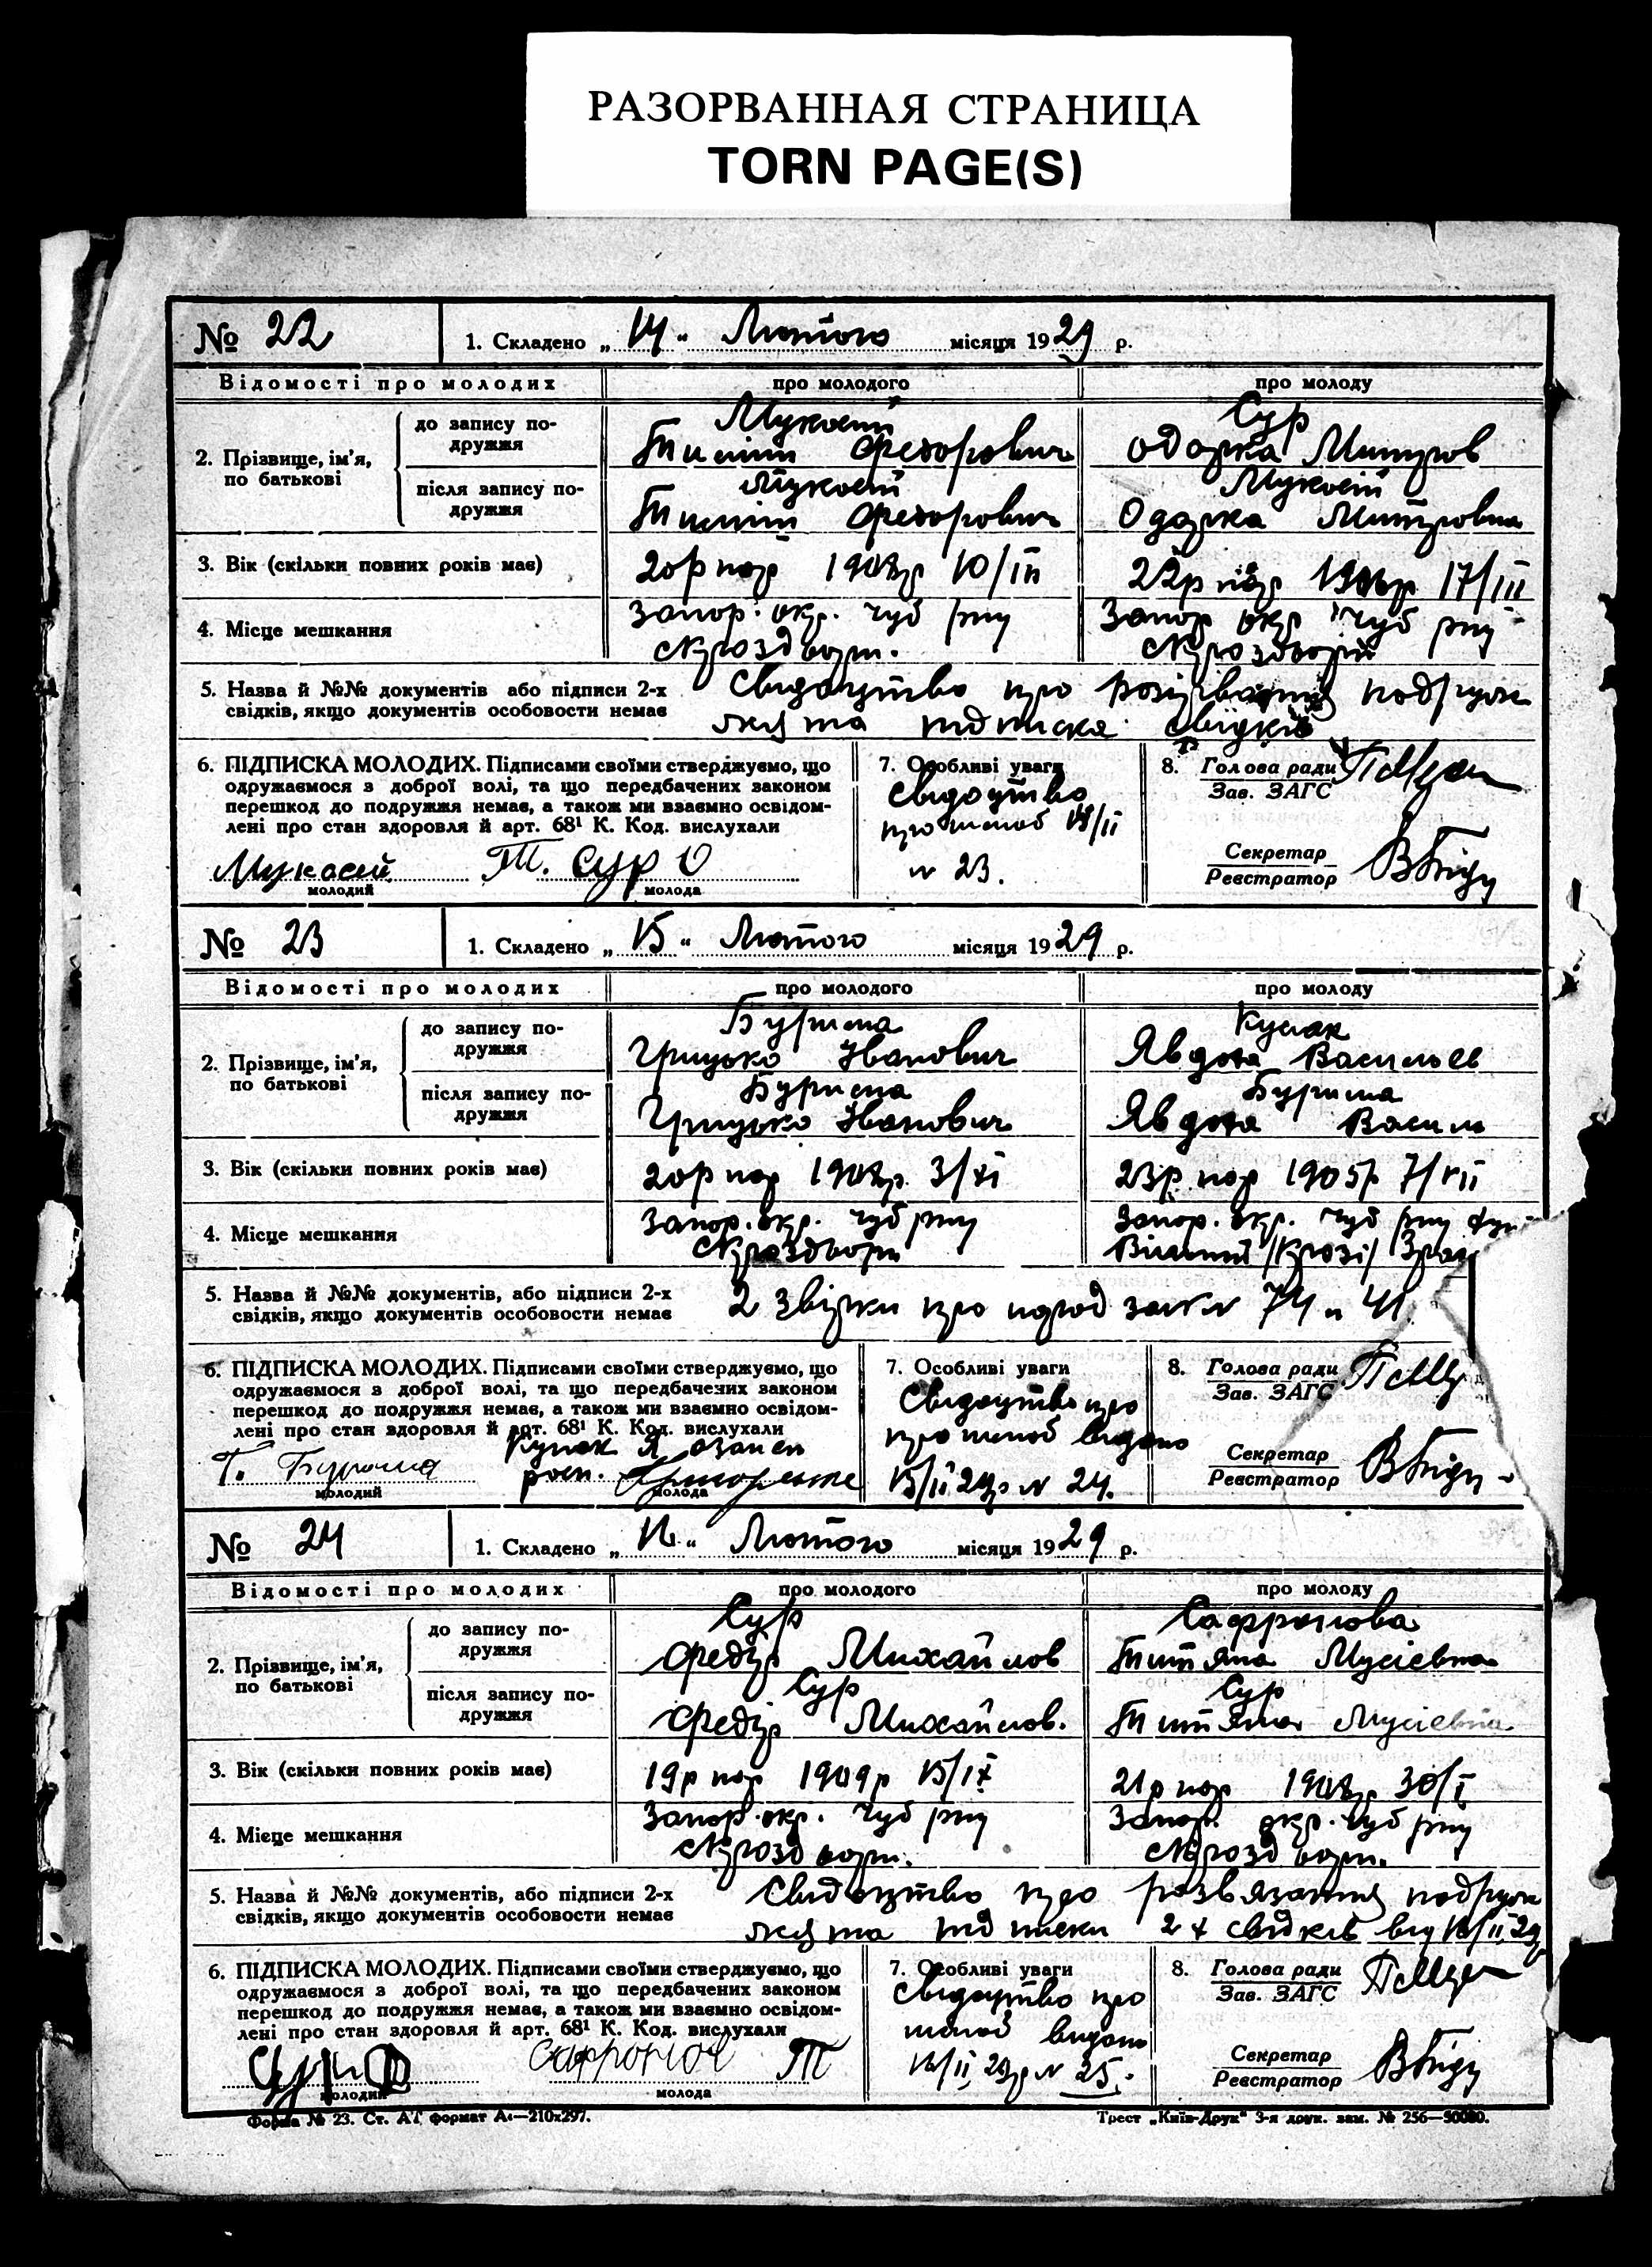 РАЗОРВАННАЯ СТРАНИЦА
TORN PAGE(S)
№ 22 1. Складено „14“ Лютого місяця 1929 р.
Відомості про молодих про молодого про молоду
2. Прізвище, ім'я, по батькові
до запису подружжя
Мукосій Сур
Федорович Одарка Митров
після запису подружжя
Мукосій Мукосій
Федорович Одарка Митровна
3. Вік (скільки повних років має) 20р нар 1908р 22р нар 1906р 17/III
4. Місце мешкання Запор. окр. Чуб рну Запор окр Чуб рну
5. Назва й №№ документів або підписи 2-х Свидоцтво про подруж
свідків, якщо документів особовости немає жжя та підписка свідків
6. ПІДПИСКА МОЛОДИХ. Підписами своїми стверджуємо, що
одружаємося з доброї волі, та що передбачених законом
перешкод до подружжя немає, а також ми взаємно освідом-
лені про стан здоровля й арт. 68¹ К. Код. вислухали
Мукосей Т. Сур О
молодий молода
7. Особливі уваги
Свидоцтво
про шлюб
№ 23.
8. Голова ради
Зав. ЗАГС
Секретар
Реєстратор
№ 23 1. Складено „15“ Лютого місяця 1929 р.
Відомості про молодих про молодого про молоду
2. Прізвище, ім'я, по батькові
до запису подружжя
Бурима
Грицько Іванович Явдоха Васильев
після запису подружжя
Бурима Бурима
Грицько Іванович Явдоха Васил
3. Вік (скільки повних років має) 20р нар 1908р. 3/XI 23р нар 1905р 7/VII
4. Місце мешкання Запор. окр. Чуб рну Запор. окр. Чуб рну
5. Назва й №№ документів, або підписи 2-х
свідків, якщо документів особовости немає
2 звірки про народ 74 и 41.
6. ПІДПИСКА МОЛОДИХ. Підписами своїми стверджуємо, що
одружаємося з доброї волі, та що передбачених законом
перешкод до подружжя немає, а також ми взаємно освідом-
лені про стан здоровля й арт. 68¹ К. Код. вислухали
Г. Бурима
молодий молода
7. Особливі уваги
Свидоцтво про
про шлюб видано
15/II 29р № 24.
8. Голова ради
Зав. ЗАГС
Секретар
Реєстратор
№ 24 1. Складено „16“ Лютого місяця 1929 р.
Відомості про молодих про молодого про молоду
2. Прізвище, ім'я, по батькові
до запису подружжя
Сур Сафронова
Федір Михайлов Титяна Мусіевна
після запису подружжя
Сур Сур
Федір Михайлов. Титяна Мусіевна
3. Вік (скільки повних років має) 19р нар 1909р 15/IX 21р нар 1908р 30/I
4. Місце мешкання Запор. окр. Чуб рну Запор. окр. Чуб рну
5. Назва й №№ документів, або підписи 2-х Свидоцтво про розвязання подруж
свідків, якщо документів особовости немає жжя та підписки 2х свідків від 16/II 29р
6. ПІДПИСКА МОЛОДИХ. Підписами своїми стверджуємо, що
одружаємося з доброї волі, та що передбачених законом
перешкод до подружжя немає, а також ми взаємно освідом-
лені про стан здоровля й арт. 68¹ К. Код. вислухали
Сур Ф Сафронов Т
молодий молода
7. Особливі уваги
Свидоцтво про
шлюб видано
16/II 29р № 25.
8. Голова ради
Зав. ЗАГС
Секретар
Реєстратор
Форма № 23. Ст. А1 формат А4—210х297. Трест „Київ-Друк“ 3-я друк. зам. № 256—50000.